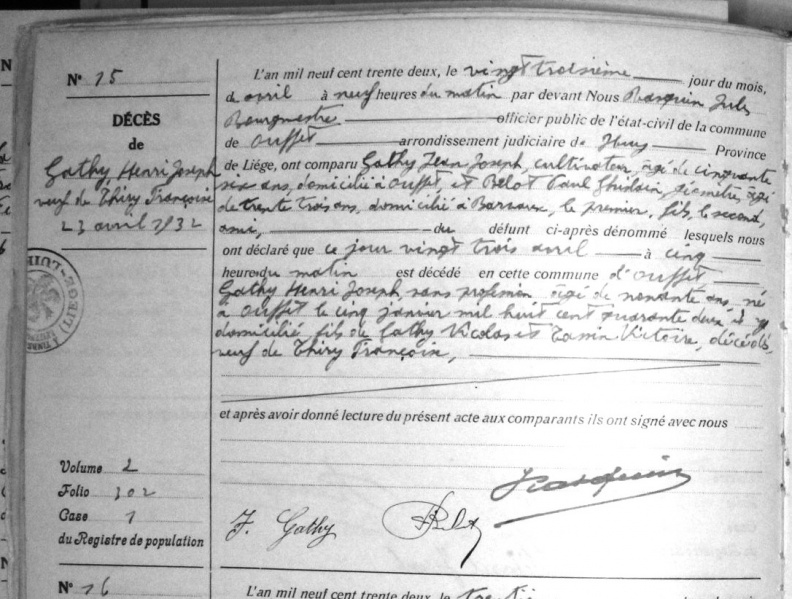 N° 15
DÉCÈS
de
Gathy Henri Joseph
veuf de Thiry Françoise
23 avril 1932
L'an mil neuf cent trente deux, le vingt troisième jour du mois,
de avril à neuf heures du matin par devant Nous Jules
Bourgmestre officier public de l'état-civil de la commune
de Ouffet arrondissement judiciaire de Huy Province
de Liége, ont comparu Gathy Jean Joseph, cultivateur, âgé de cinquante
six ans, domicilié à Ouffet, et Belot Paul Ghislain, géomètre, âgé
de trente trois ans, domicilié à Barvaux, le premier, fils, le second,
ami, du défunt ci-après dénommé lesquels nous
ont déclaré que ce jour vingt trois avril à cinq
heures du matin est décédé en cette commune d'Ouffet
Gathy Henri Joseph, sans profession âgé de nonante ans, né
à Ouffet le cinq janvier mil huit cent quarante deux, et y
domicilié, fils de Gathy Nicolas et Tassin Victoire, décédés,
veuf de Thiry Françoise,
et après avoir donné lecture du présent acte aux comparants ils ont signé avec nous
Volume 2
Folio 302
Case 1
du Registre de population
J. Gathy
N° 16
L'an mil neuf cent trente deux, le